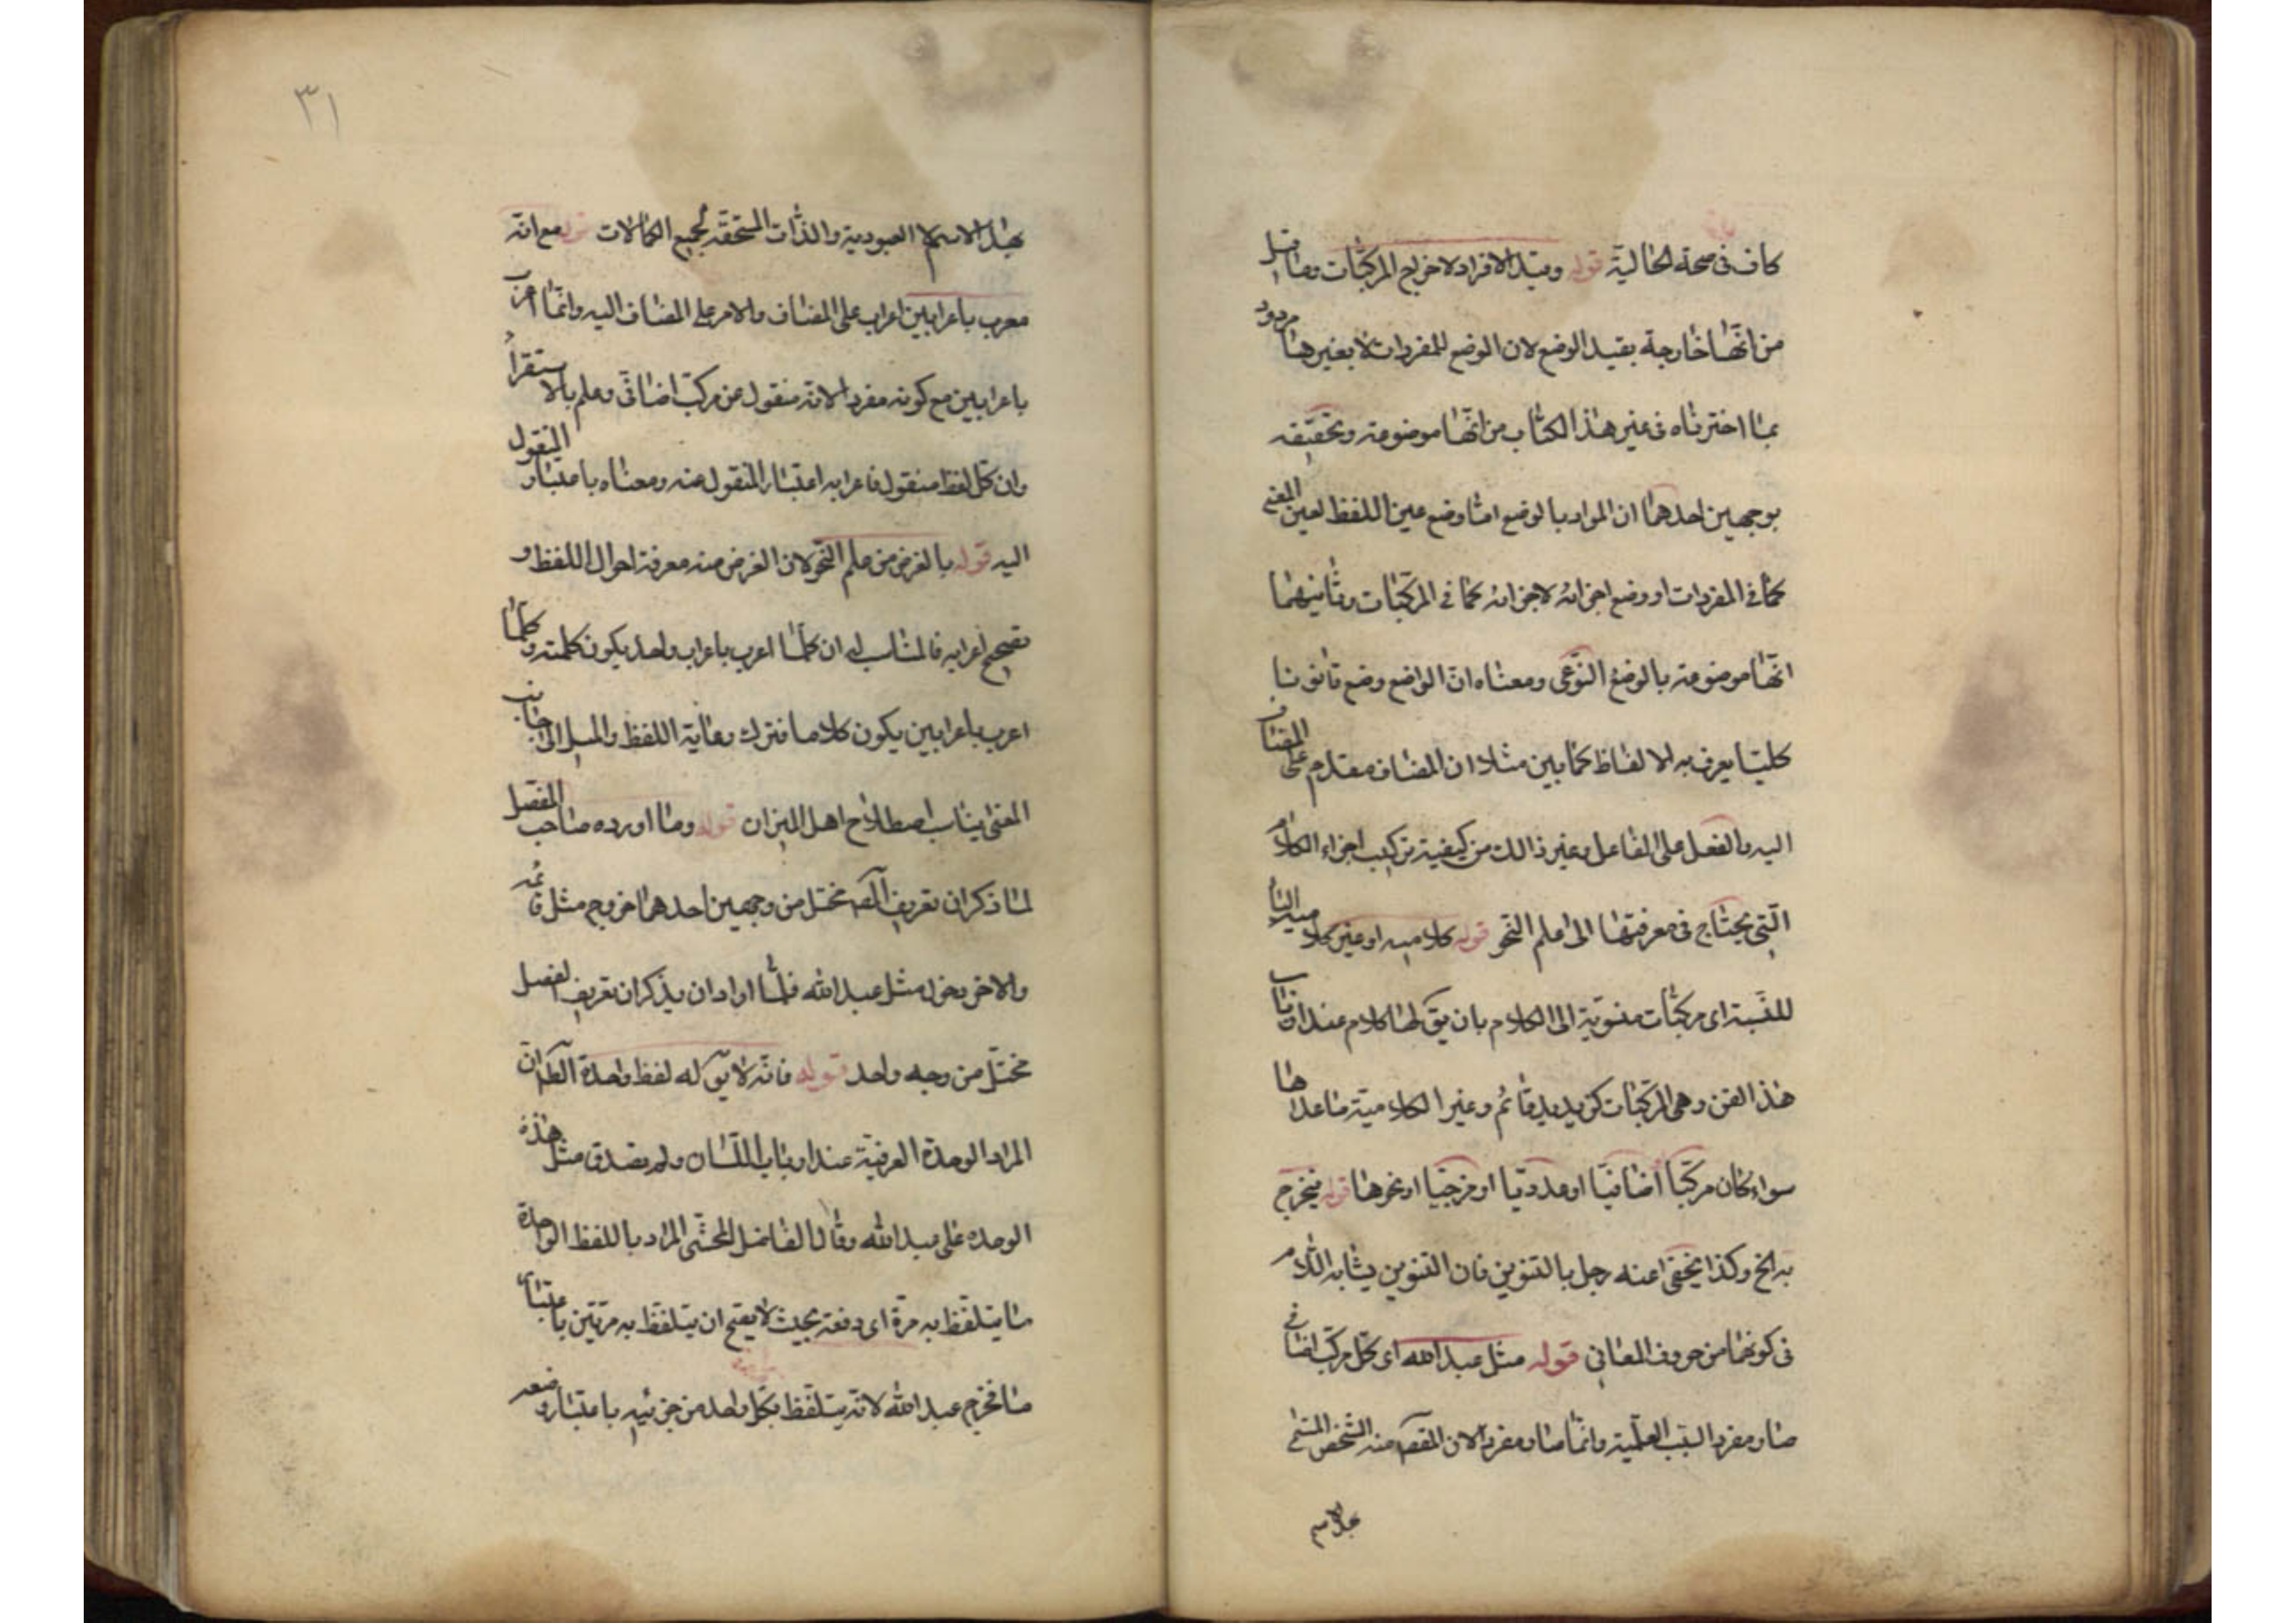 كاف فى صحة الحالية قوله وقيد الافراد لاخراج المركبات وما قيل
من انها خارجة بقيد الوضع لان الوضع للمفردات لا بغيرها مردود
بما اخترناه فى غير هذا الكتاب من انها موضوعة وتحقيقه
بوجهين احدهما ان المراد بالوضع اما وضع عين اللفظ لعين المعنى
كما فى المفردات او وضع اجزائه لاجزائه كما فى المركبات وثانيهما
انها موضوعة بالوضع النوعى ومعناه ان الواضع وضع قانونا
كليا يعرف به الالفاظ كما بين مثلا ان المضاف مقدم على المضاف
اليه والفعل على الفاعل وغير ذالك من كيفية تركيب اجزاء الكلام
التى يحتاج فى معرفتها الى علم النحو قوله كلامية او غير كلامية الياء
للنسبة اى مركبات منسوبة الى الكلام بان يق لها كلام عند ارباب
هذا الفن وهى المركبات كزيد قائم وغير الكلامية ما عداها
سواء كان مركبا اضافيا او عدديا او مزجيا او نحوها قوله فيخرج
به الخ وكذا يخفى عنه رجل بالتنوين فان التنوين يشابه اللام
فى كونهما من حروف المعانى قوله مثل عبد الله اى كل مركب اضافى
صار مفردا بسبب العلمية وانما صار مفردا لان المقصـ منه الشخص المسمى
بهذا الاسم
بهذا الاسم لا العبودية والذات المستحقة لجميع الكمالات قوله مع انه
معرب باعرابين اعراب على المضاف والاخر على المضاف اليه وانما اعرب
باعرابين مع كونه مفردا لانه منقول عن مركب اضافى وعلم بالاستقراء
وان كل لفظ منقول فاعرابه اعتبار المنقول عنه ومعناه باعتبار المنقول
اليه قوله بالغرض من علم النحو لان الغرض منه معرفة احوال اللفظ و
تصحيح اعرابه فالمناسب له ان كلما اعرب باعراب واحد يكون كلمة وكلما
اعرب باعرابين يكون كلاما فترك رعاية اللفظ والميل الى جانب
المعنى يناسب اصطلاح اهل الميزان قوله وما اورده صاحب المفصل
لما ذكر ان تعريف الكـ مختل من وجهين احدهما خروج مثل قائمة
والاخر دخول مثل عبد الله فلما اراد ان يذكر ان تعريف المفصل
مختل من وجه واحد قوله فانه لا يق له لفظ واحدة الظـ ان
المراد الوحدة العرفية عند ارباب اللسان ولم يصدق مثل هذه
الوحدة على عبد الله وقال الفاضل المحشى المراد باللفظ الواحدة
ما يتلفظ به مرة اى دفعة بحيث لا يقبح ان يتلفظ به مرتين باعتبار
ما فخرج عبد الله لانه يتلفظ بكل واحد من جزئيه باعتبار وضعه
٣١